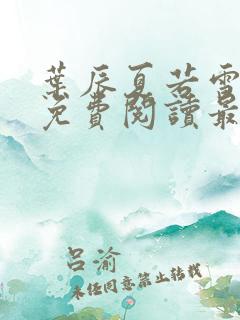 葉辰夏若雪
免費閱讀最
呂渝
未经同意禁止转载